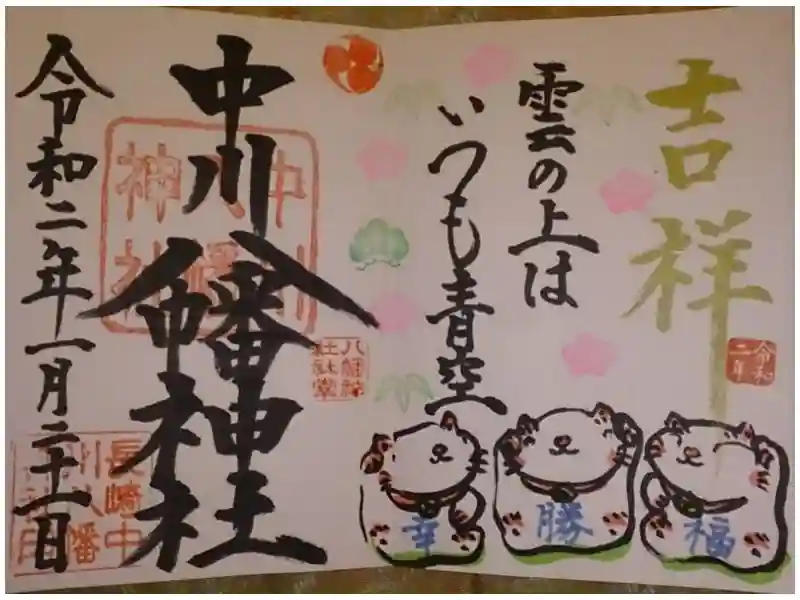 吉祥
令和
二年
雲の上は
いつも青空
福
勝
幸
中川八幡神社
中川
八幡
神社
令和二年一月二十一日
長崎中
川八幡